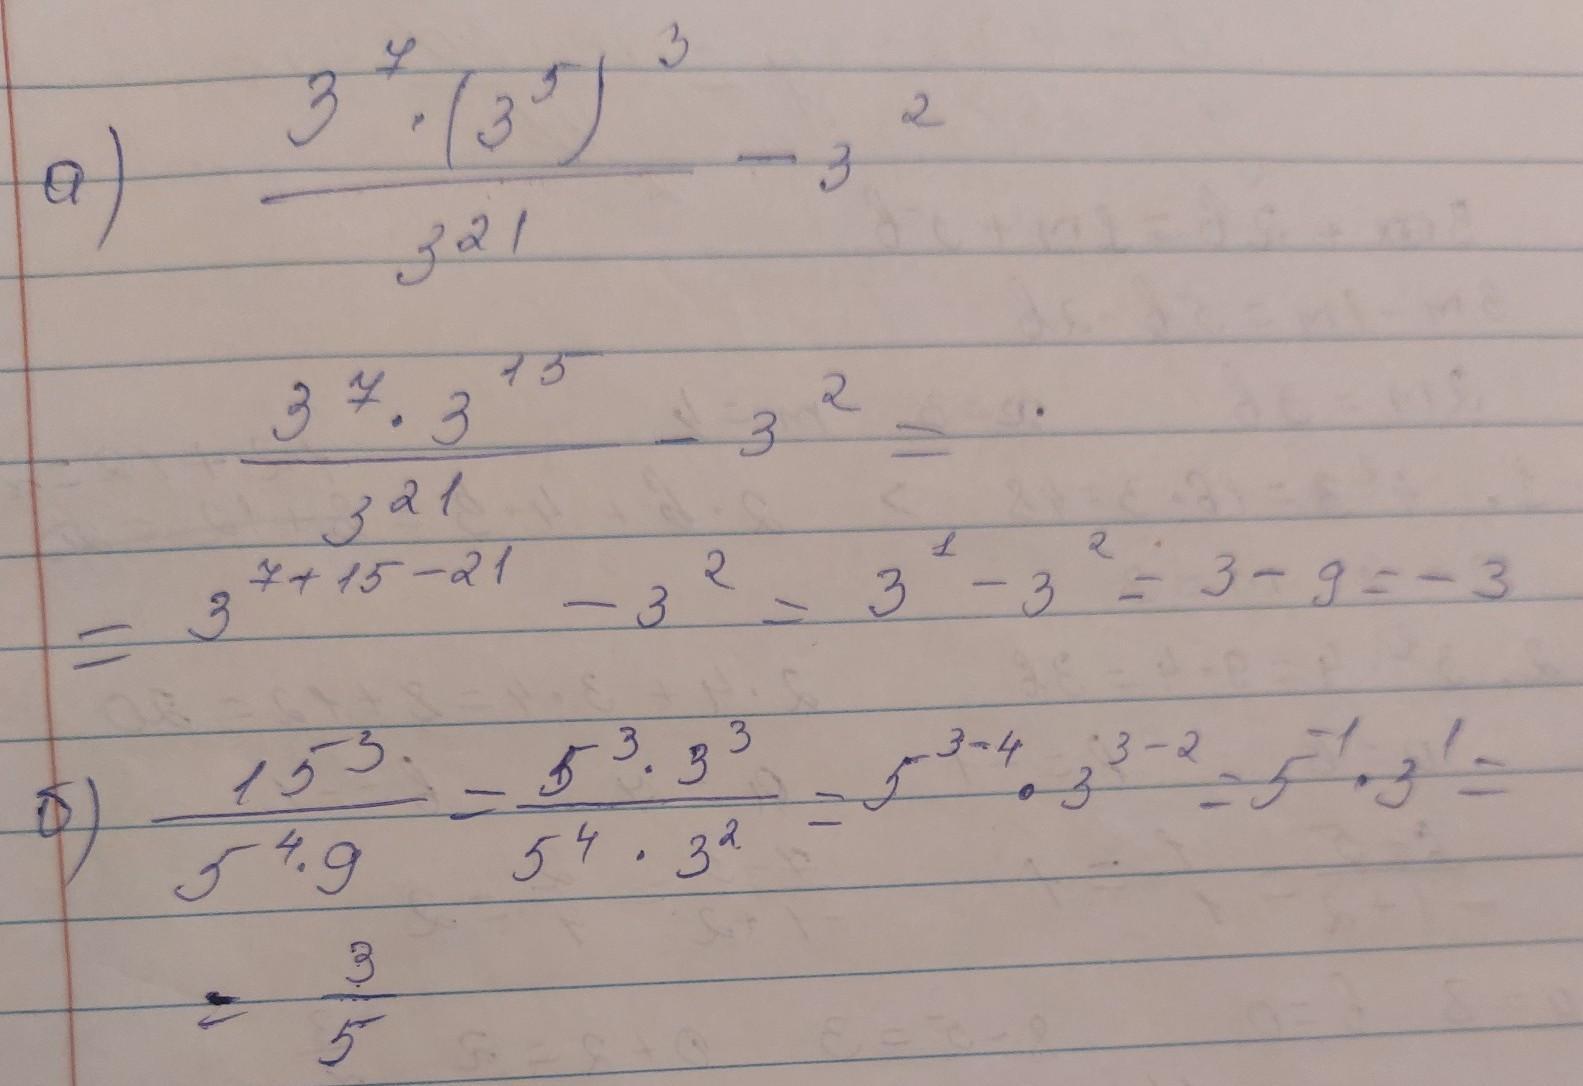 а) (3^7 · (3^5)^3) / 3^21 − 3^2
(3^7 · 3^15) / 3^21 − 3^2 =
= 3^(7+15−21) − 3^2 = 3^1 − 3^2 = 3 − 9 = −3
б) 15^3 / (5^4 · 9) = (5^3 · 3^3) / (5^4 · 3^2) = 5^(3−4) · 3^(3−2) = 5^(−1) · 3^1 =
= 3/5